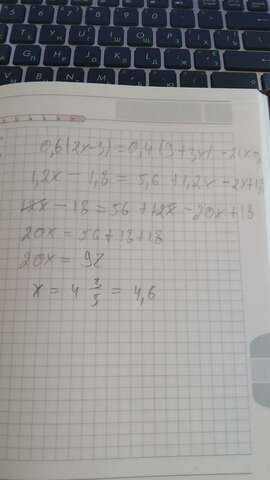 0,6(2x-3)=0,4(9+3x)-2(x
1,2x - 1,8 = 5,6 + 1,2x - 2x+1,8
12x - 18 = 56 + 12x - 20x + 18
20x = 56+18+18
20x = 92
x = 4 3/5 = 4,6